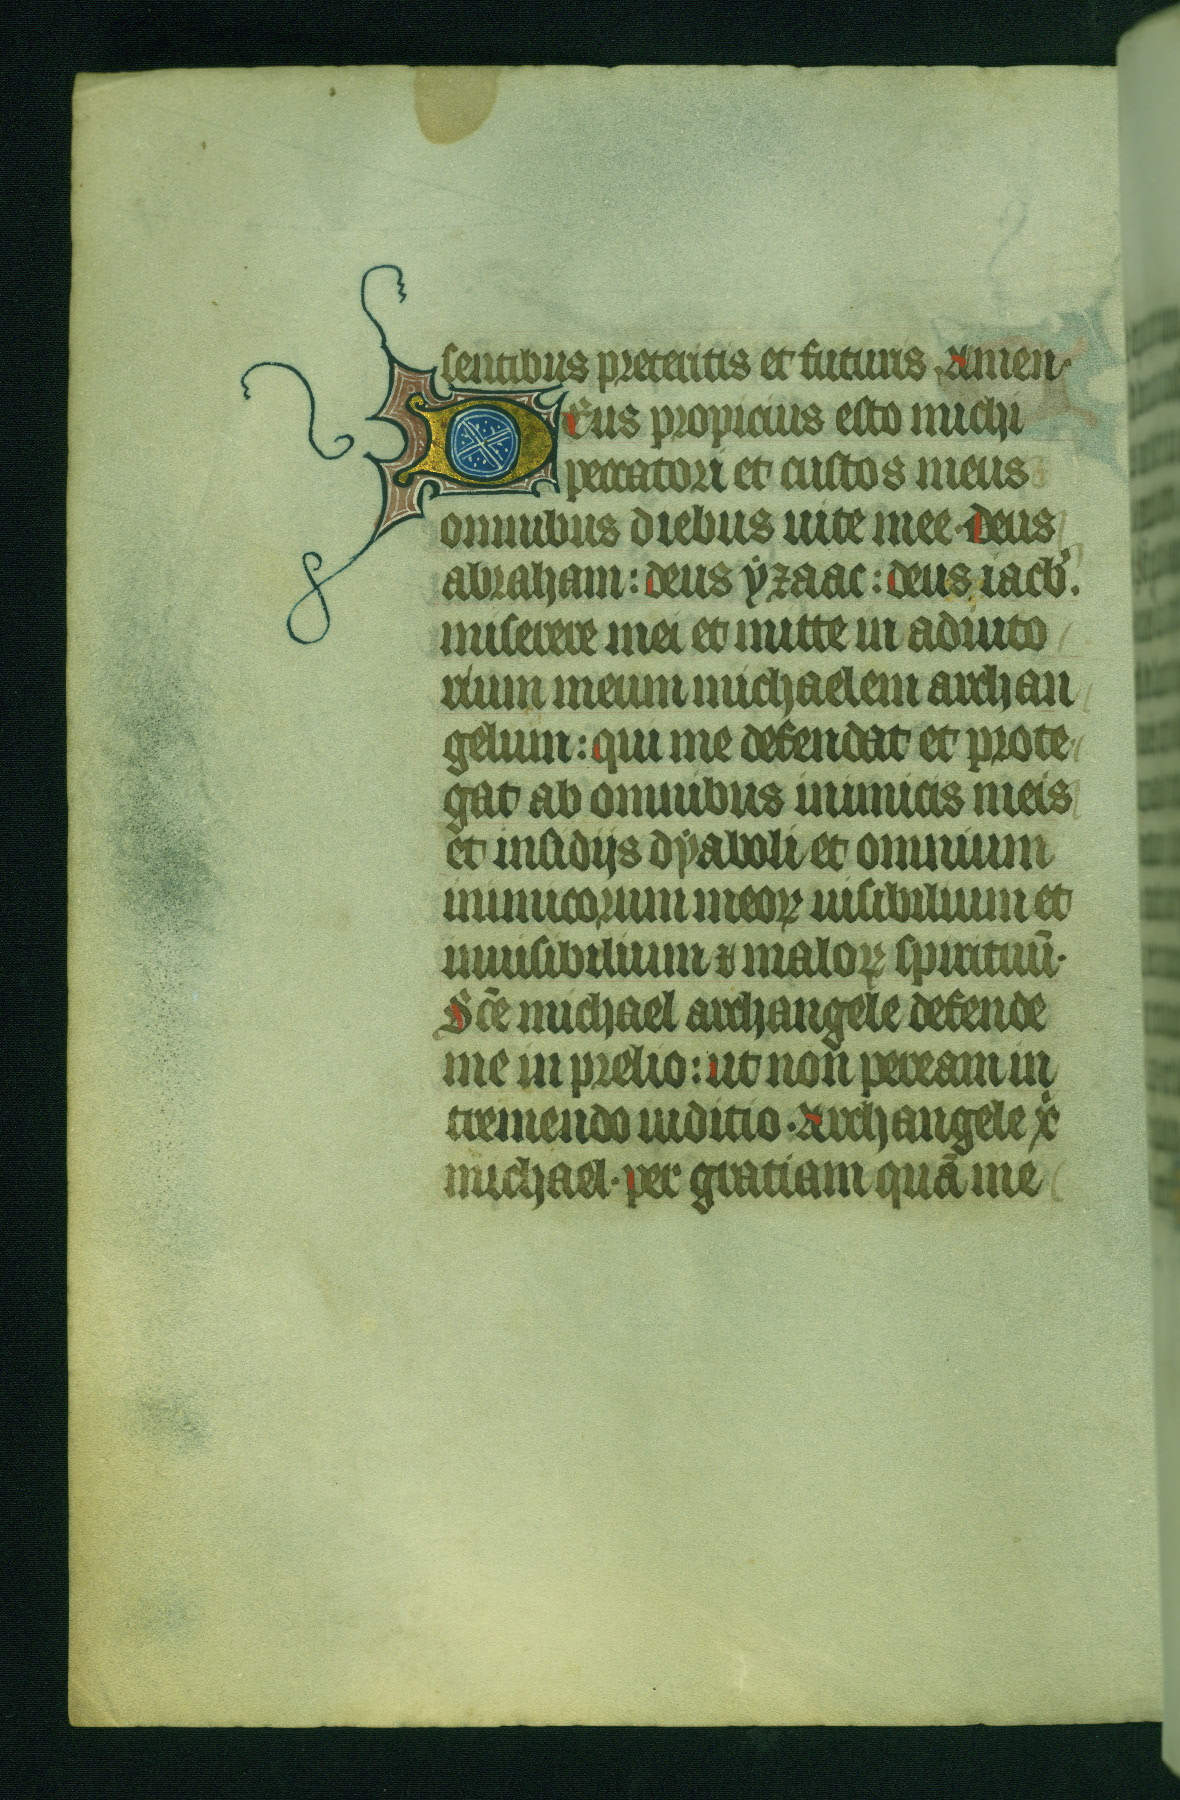 sentibus preteritis et futuris. Amen.
DEus propicius esto michi
peccatori et custos meus
omnibus diebus uite mee. deus
abraham: deus ẏzaac: deus iacb̓.
miserere mei et mitte in adiuto
rium meum michaelem archan
gelum: qui me defendat et prote
gat ab omnibus inimicis meis
et insidijs dẏaboli et omnium
inimicorum meoꝝ uisibilium et
inuisibilium ⁊ maloꝝ spirituū.
Sc̄e michael archangele defende
me in prelio: ut non peream in
tremendo iuditio. Archangele xp̄i
michael. per gratiam quā me